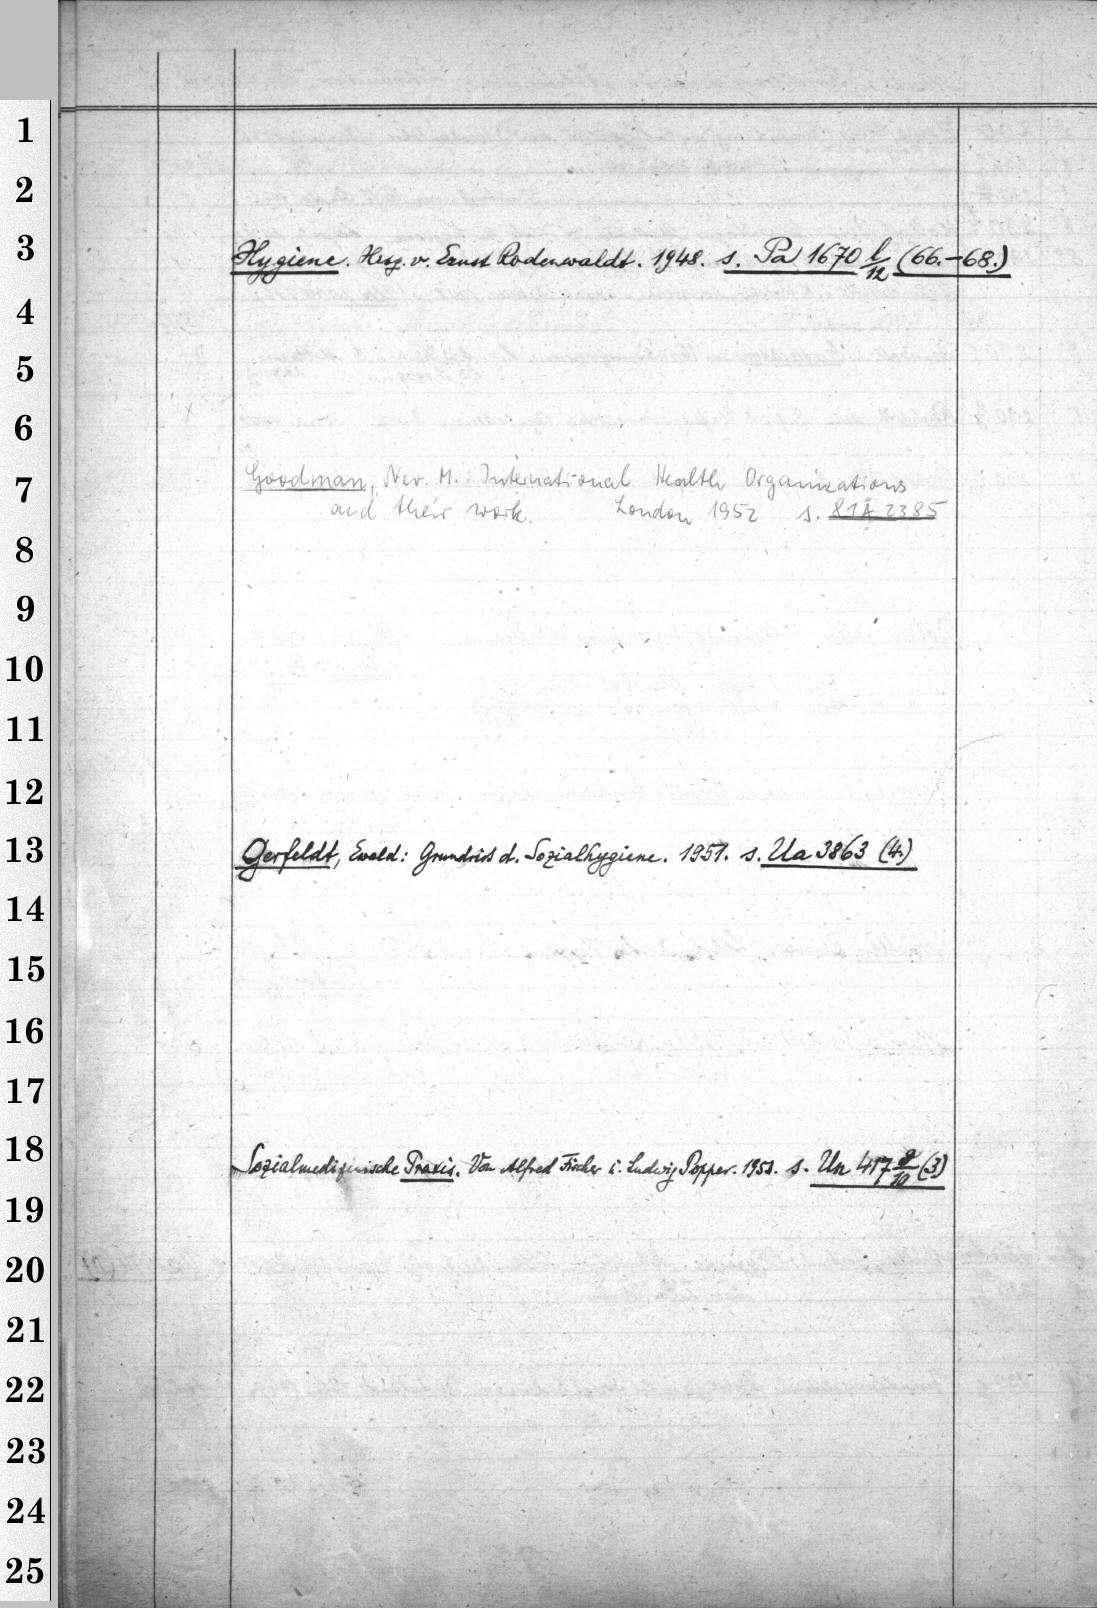 1
2
3
Hygiene. Hrsg. v. Ernst Rodenwaldt. 1948. s. Pa 1670 l/12 (66.-68.)
4
5
6
7
Goodman, Nev. M.: International Health Organizations
and their work. London 1952 s. 81A 2385
8
9
10
11
12
13
Gerfeldt, Ewald: Grundriß d. Sozialhygiene. 1951. s. Ua 3863 (4)
14
15
16
17
18
Sozialmedizinische Praxis. Von Alfred Fischer u. Ludwig Popper. 1953. s. Un 417 /10 (3)
19
20
21
22
23
24
25